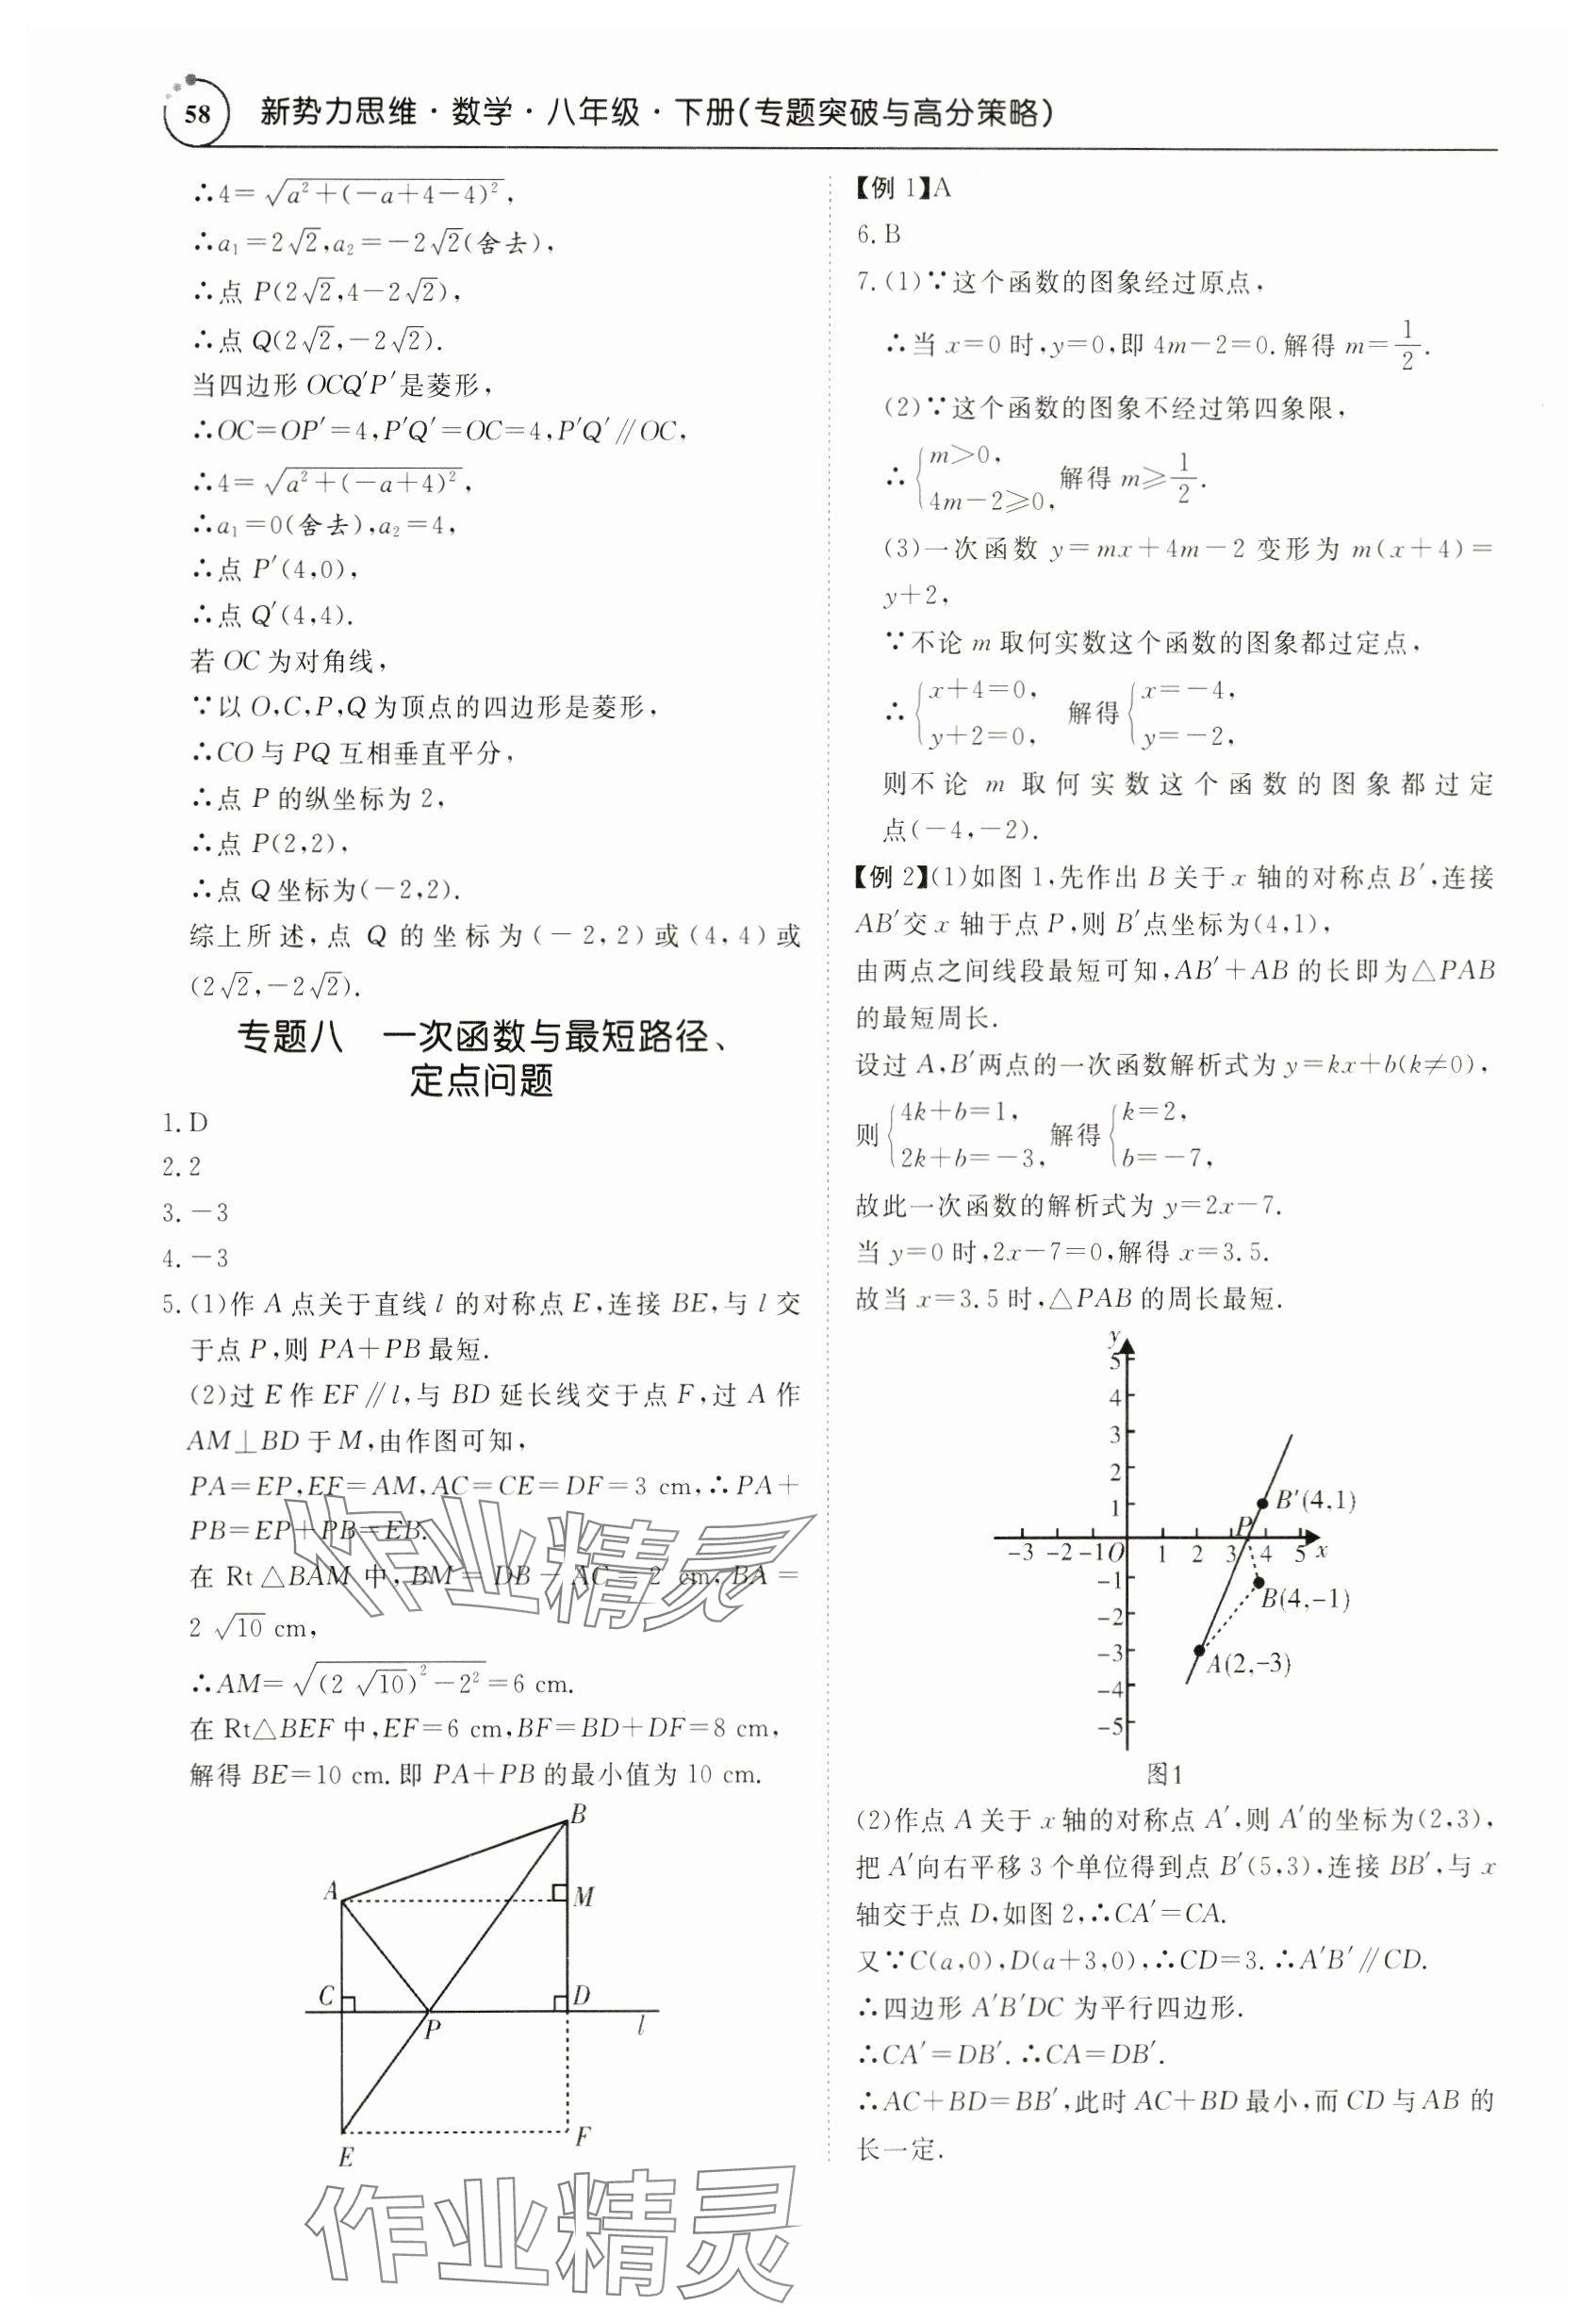 58 新势力思维·数学·八年级·下册(专题突破与高分策略)
∴4=√(a²+(-a+4-4)²),
∴a₁=2√2,a₂=-2√2(舍去),
∴点 P(2√2,4-2√2),
∴点 Q(2√2,-2√2).
当四边形 OCQ′P′是菱形,
∴OC=OP′=4,P′Q′=OC=4,P′Q′∥OC,
∴4=√(a²+(-a+4)²),
∴a₁=0(舍去),a₂=4,
∴点 P′(4,0),
∴点 Q′(4,4).
若 OC 为对角线,
∵以 O,C,P,Q 为顶点的四边形是菱形,
∴CO 与 PQ 互相垂直平分,
∴点 P 的纵坐标为 2,
∴点 P(2,2),
∴点 Q 坐标为(-2,2).
综上所述,点 Q 的坐标为(-2,2)或(4,4)或
(2√2,-2√2).
专题八 一次函数与最短路径、
定点问题
1. D
2. 2
3. -3
4. -3
5. (1)作 A 点关于直线 l 的对称点 E,连接 BE,与 l 交
于点 P,则 PA+PB 最短.
(2)过 E 作 EF∥l,与 BD 延长线交于点 F,过 A 作
AM⊥BD 于 M,由作图可知,
PA=EP,EF=AM,AC=CE=DF=3 cm,∴PA+
PB=EP+PB=EB.
在 Rt△BAM 中,BM=DB-AC=2 cm,BA=
2 √10 cm,
∴AM=√((2 √10)²-2²)=6 cm.
在 Rt△BEF 中,EF=6 cm,BF=BD+DF=8 cm,
解得 BE=10 cm.即 PA+PB 的最小值为 10 cm.
B
A
M
C
D
P
l
E
F
【例 1】A
6. B
7. (1)∵这个函数的图象经过原点,
∴当 x=0 时,y=0,即 4m-2=0.解得 m=1/2.
(2)∵这个函数的图象不经过第四象限,
∴{m>0, 4m-2≥0, 解得 m≥1/2.
(3)一次函数 y=mx+4m-2 变形为 m(x+4)=
y+2,
∵不论 m 取何实数这个函数的图象都过定点,
∴{x+4=0, y+2=0, 解得{x=-4, y=-2,
则不论 m 取何实数这个函数的图象都过定
点(-4,-2).
【例 2】(1)如图 1,先作出 B 关于 x 轴的对称点 B′,连接
AB′交 x 轴于点 P,则 B′点坐标为(4,1),
由两点之间线段最短可知,AB′+AB 的长即为△PAB
的最短周长.
设过 A,B′两点的一次函数解析式为 y=kx+b(k≠0),
则{4k+b=1, 2k+b=-3, 解得{k=2, b=-7,
故此一次函数的解析式为 y=2x-7.
当 y=0 时,2x-7=0,解得 x=3.5.
故当 x=3.5 时,△PAB 的周长最短.
y
5
4
3
2
1
B′(4,1)
P
-3 -2 -1 O 1 2 3 4 5 x
-1
B(4,-1)
-2
-3
A(2,-3)
-4
-5
图1
(2)作点 A 关于 x 轴的对称点 A′,则 A′的坐标为(2,3),
把 A′向右平移 3 个单位得到点 B′(5,3),连接 BB′,与 x
轴交于点 D,如图 2,∴CA′=CA.
又∵C(a,0),D(a+3,0),∴CD=3.∴A′B′∥CD.
∴四边形 A′B′DC 为平行四边形.
∴CA′=DB′.∴CA=DB′.
∴AC+BD=BB′,此时 AC+BD 最小,而 CD 与 AB 的
长一定.
作业精灵
作业精灵